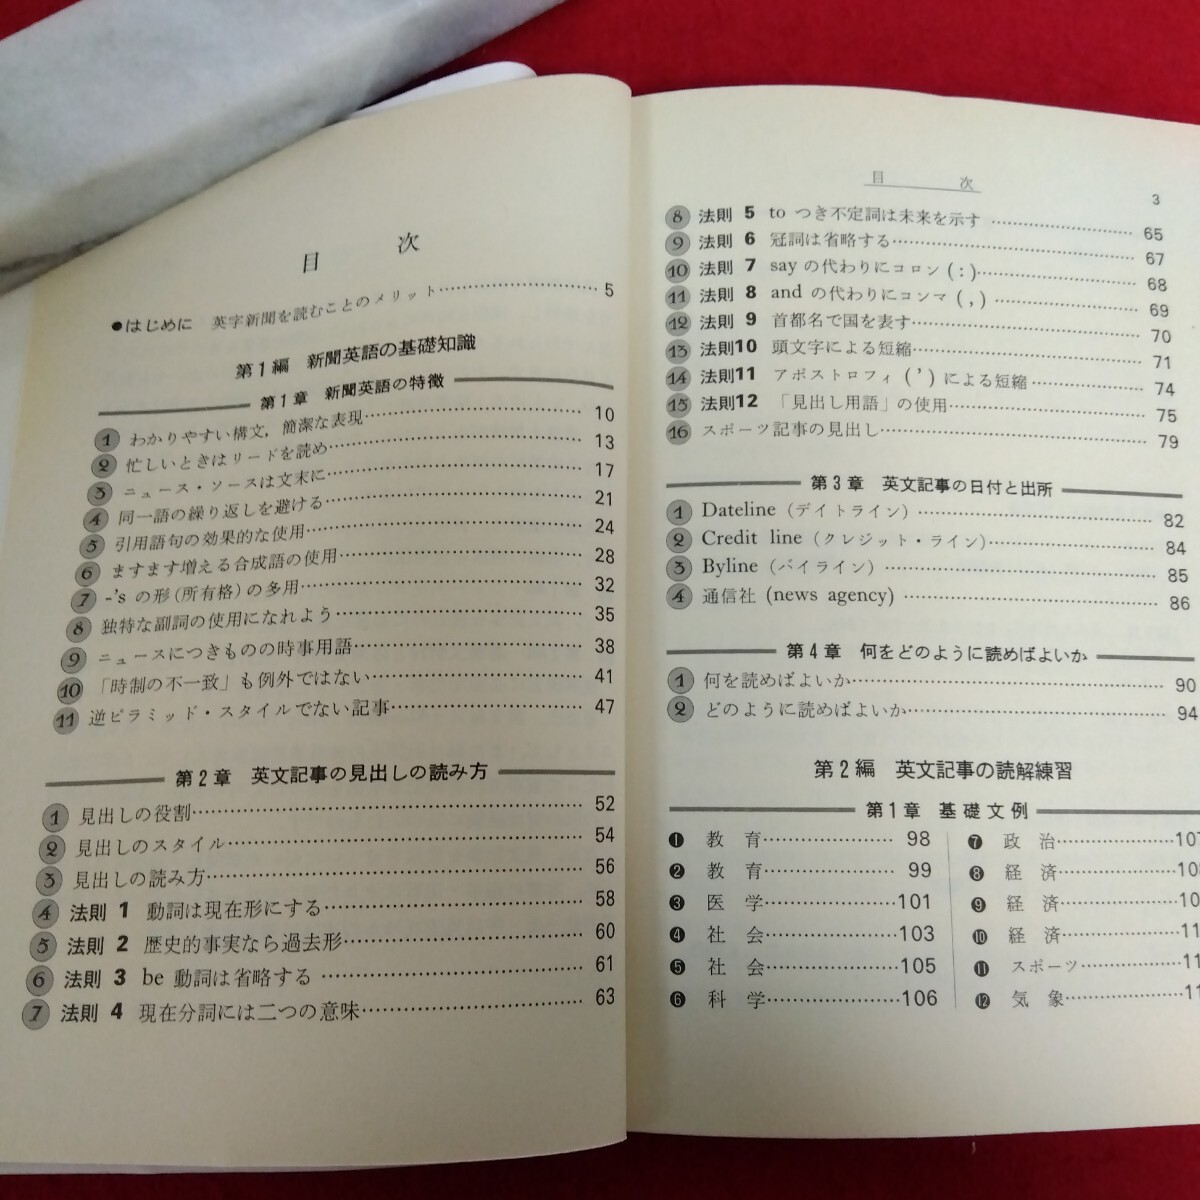 目 次
●はじめに 英字新聞を読むことのメリット……………………5
第1編 新聞英語の基礎知識
第1章 新聞英語の特徴
1 わかりやすい構文，簡潔な表現……………………10
2 忙しいときはリードを読め……………………13
3 ニュース・ソースは文末に……………………17
4 同一語の繰り返しを避ける……………………21
5 引用語句の効果的な使用……………………24
6 ますます増える合成語の使用……………………28
7 -'s の形（所有格）の多用……………………32
8 独特な副詞の使用になれよう……………………35
9 ニュースにつきものの時事用語……………………38
10 「時制の不一致」も例外ではない……………………41
11 逆ピラミッド・スタイルでない記事……………………47
第2章 英文記事の見出しの読み方
1 見出しの役割……………………52
2 見出しのスタイル……………………54
3 見出しの読み方……………………56
4 法則 1 動詞は現在形にする……………………58
5 法則 2 歴史的事実なら過去形……………………60
6 法則 3 be 動詞は省略する……………………61
7 法則 4 現在分詞には二つの意味……………………63
目 次 3
8 法則 5 to つき不定詞は未来を示す……………………65
9 法則 6 冠詞は省略する……………………67
10 法則 7 say の代わりにコロン（：）……………………68
11 法則 8 and の代わりにコンマ（，）……………………69
12 法則 9 首都名で国を表す……………………70
13 法則10 頭文字による短縮……………………71
14 法則11 アポストロフィ（'）による短縮……………………74
15 法則12 「見出し用語」の使用……………………75
16 スポーツ記事の見出し……………………79
第3章 英文記事の日付と出所
1 Dateline（デイトライン）……………………82
2 Credit line（クレジット・ライン）……………………84
3 Byline（バイライン）……………………85
4 通信社 (news agency)……………………86
第4章 何をどのように読めばよいか
1 何を読めばよいか……………………90
2 どのように読めばよいか……………………94
第2編 英文記事の読解練習
第1章 基礎文例
❶ 教 育……………………98
❷ 教 育……………………99
❸ 医 学……………………101
❹ 社 会……………………103
❺ 社 会……………………105
❻ 科 学……………………106
❼ 政 治……………………107
❽ 経 済……………………
❾ 経 済……………………
❿ 経 済……………………
⓫ スポーツ……………………
⓬ 気 象……………………